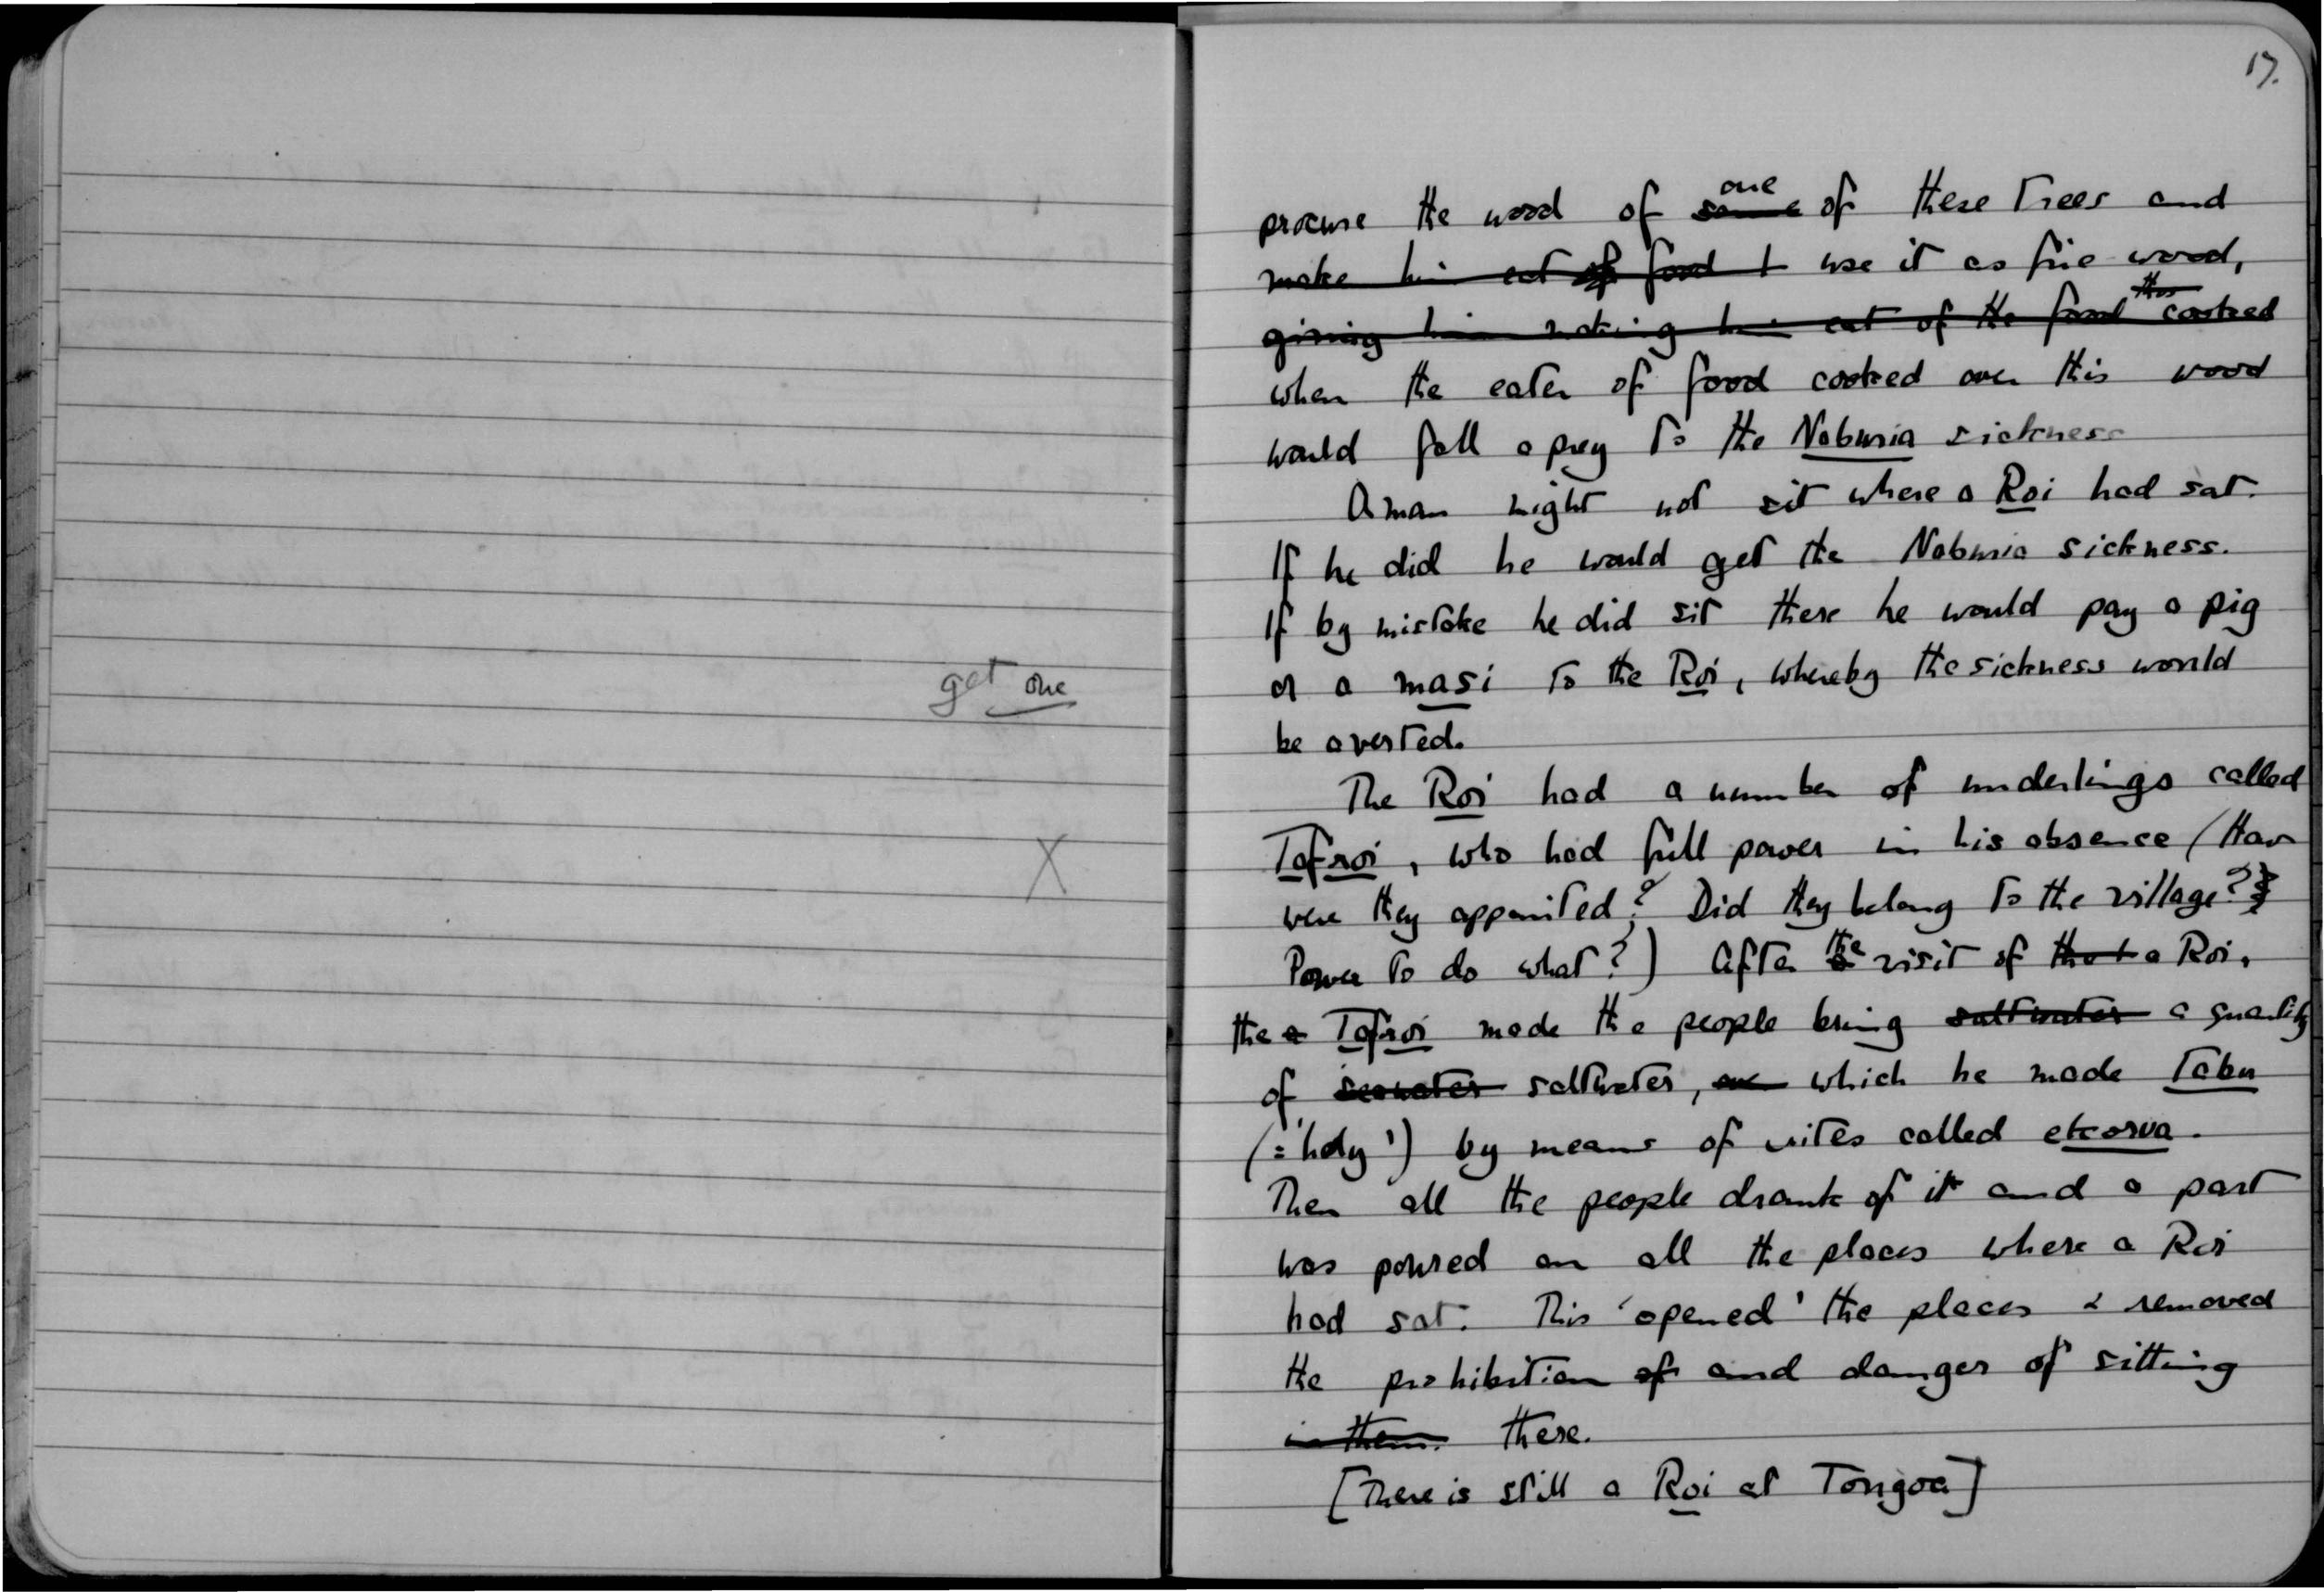 get one
X
17.
one
procure the wood of some of these trees and
make him eat of food & use it as fire wood,
thus
giving him making him eat of the food cooked
when the eater of food cooked over this wood
would fall a prey to the Nabwia sickness
A man might not sit where a Roi had sat.
If he did he would get the Nabwia sickness.
If by mistake he did sit there he would pay a pig
or a masi to the Roi, whereby the sickness would
be averted.
The Roi had a number of underlings called
Tafroi, who had full power in his absence (How
were they appointed? Did they belong to the village?
Power to do what?) After the visit of that a Roi,
the a Tafroi made the people bring saltwater a quantity
of seawater saltwater, which he made Tabu
(= 'holy') by means of rites called
Then all the people drank of it and a part
was poured on all the places where a Roi
had sat. This 'opened' the places & removed
the prohibition of and danger of sitting
in them. there.
[There is still a Roi at Tongoa]